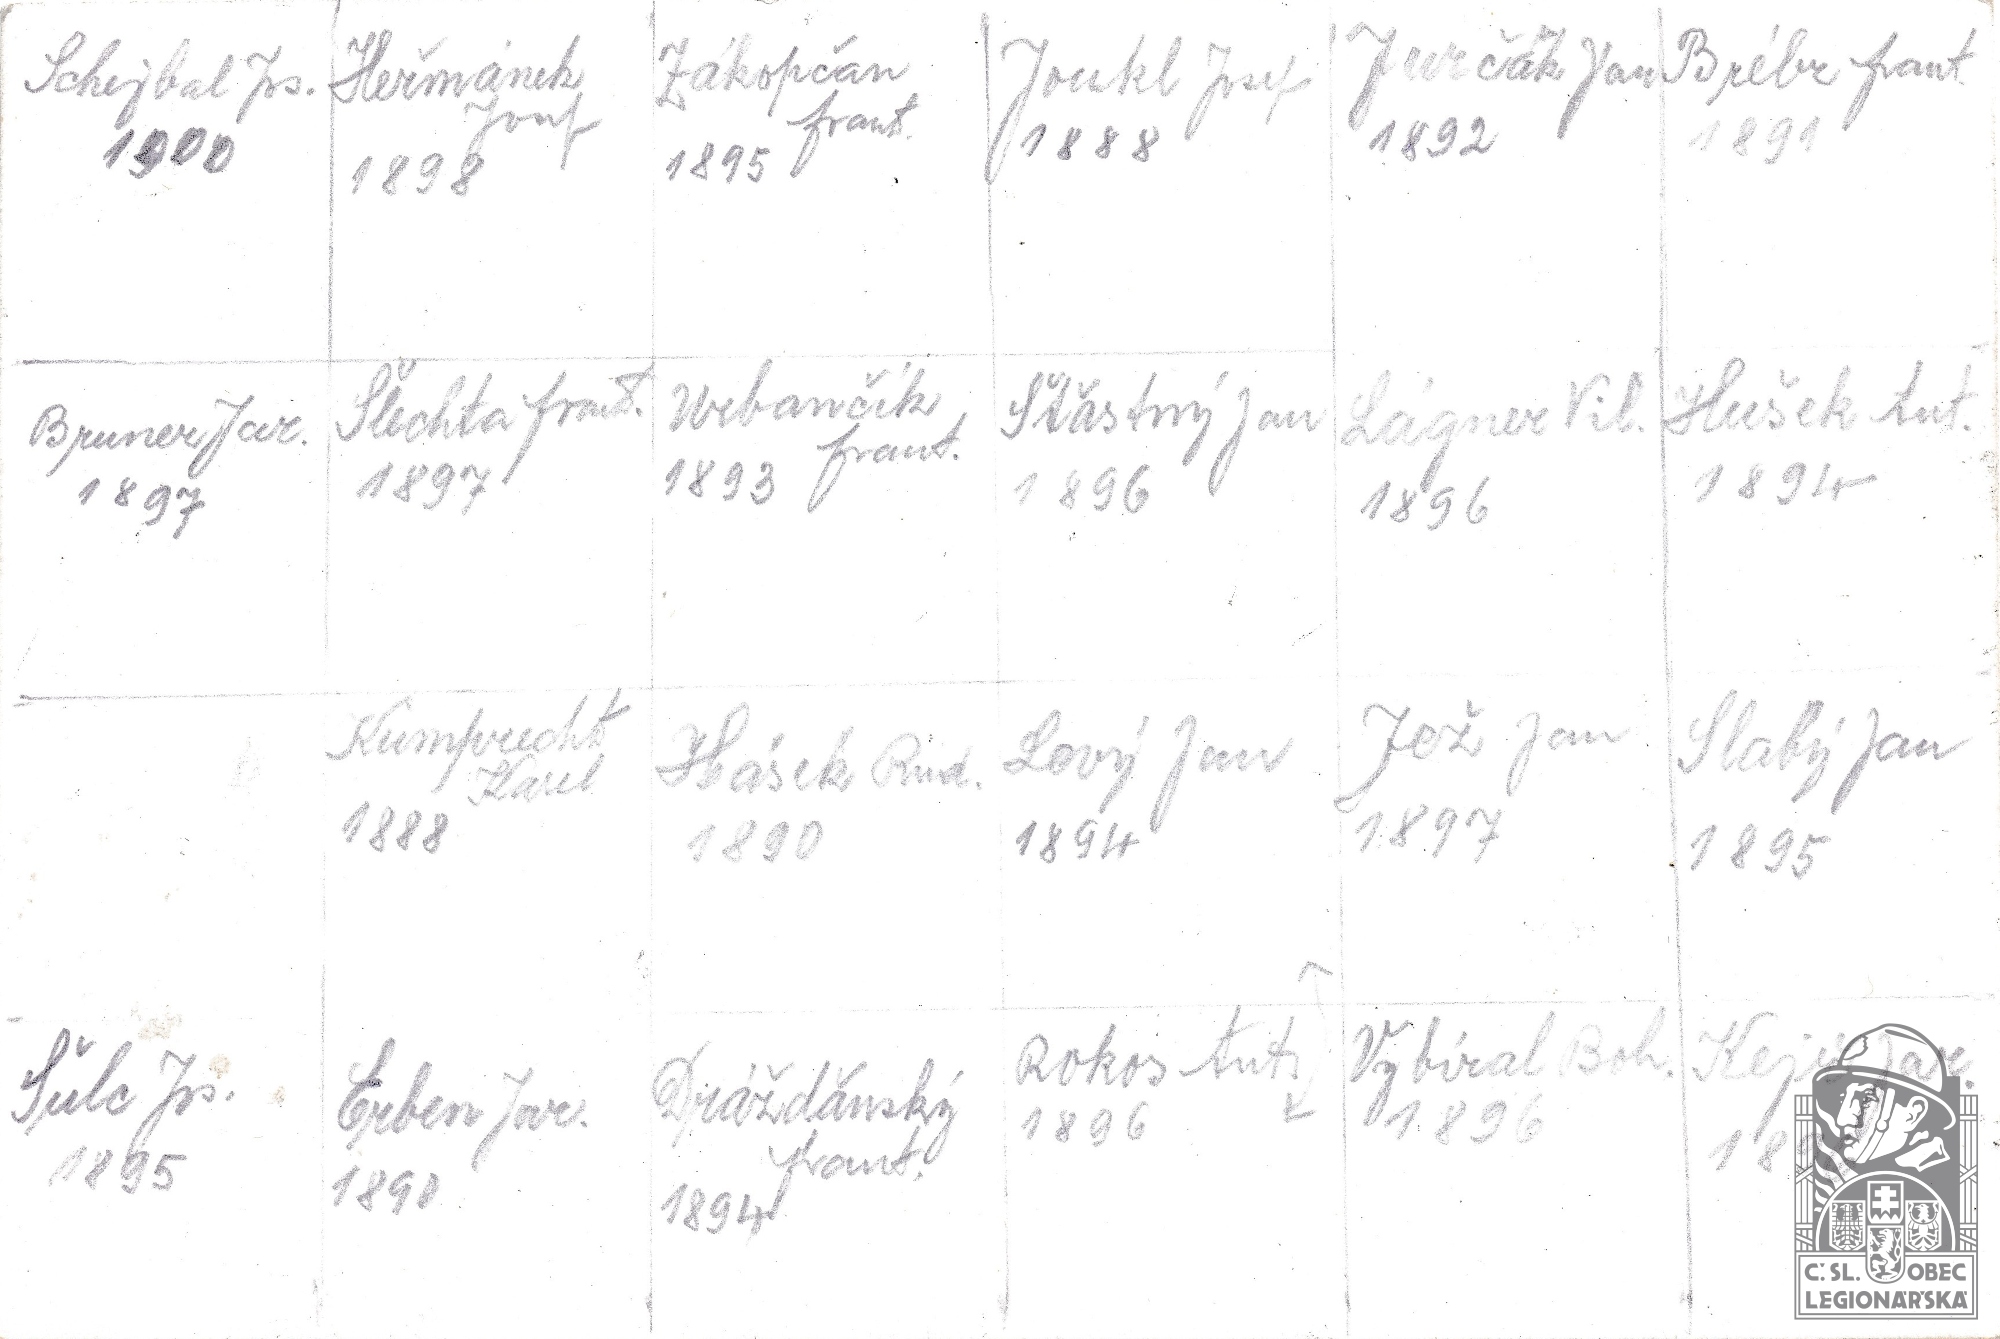 Schejbal Jos.
1900
Heřmánek
Josef
1898
Zákopčan
frant.
1895
Joukl Josef
1888
Jurčák Jan
1892
Brébr frant
1891
Bruner Jar.
1897
Šlechta frant.
1897
Urbančík
frant.
1893
Šťastný Jan
1896
Lágner Vil.
1896
Hušek Ant.
1894
Kumprecht
Karel
1888
Hásek Rud.
1890
Lový Jan
1894
Jož Jan
1897
Slabý Jan
1895
Šulc Jos.
1895
Erben Jar.
1890
Drážďánský
frant.
1894
Rokos Ant.
1896
Vybíral Boh.
1896
Jar.
Č.SL. OBEC
LEGIONÁŘSKÁ